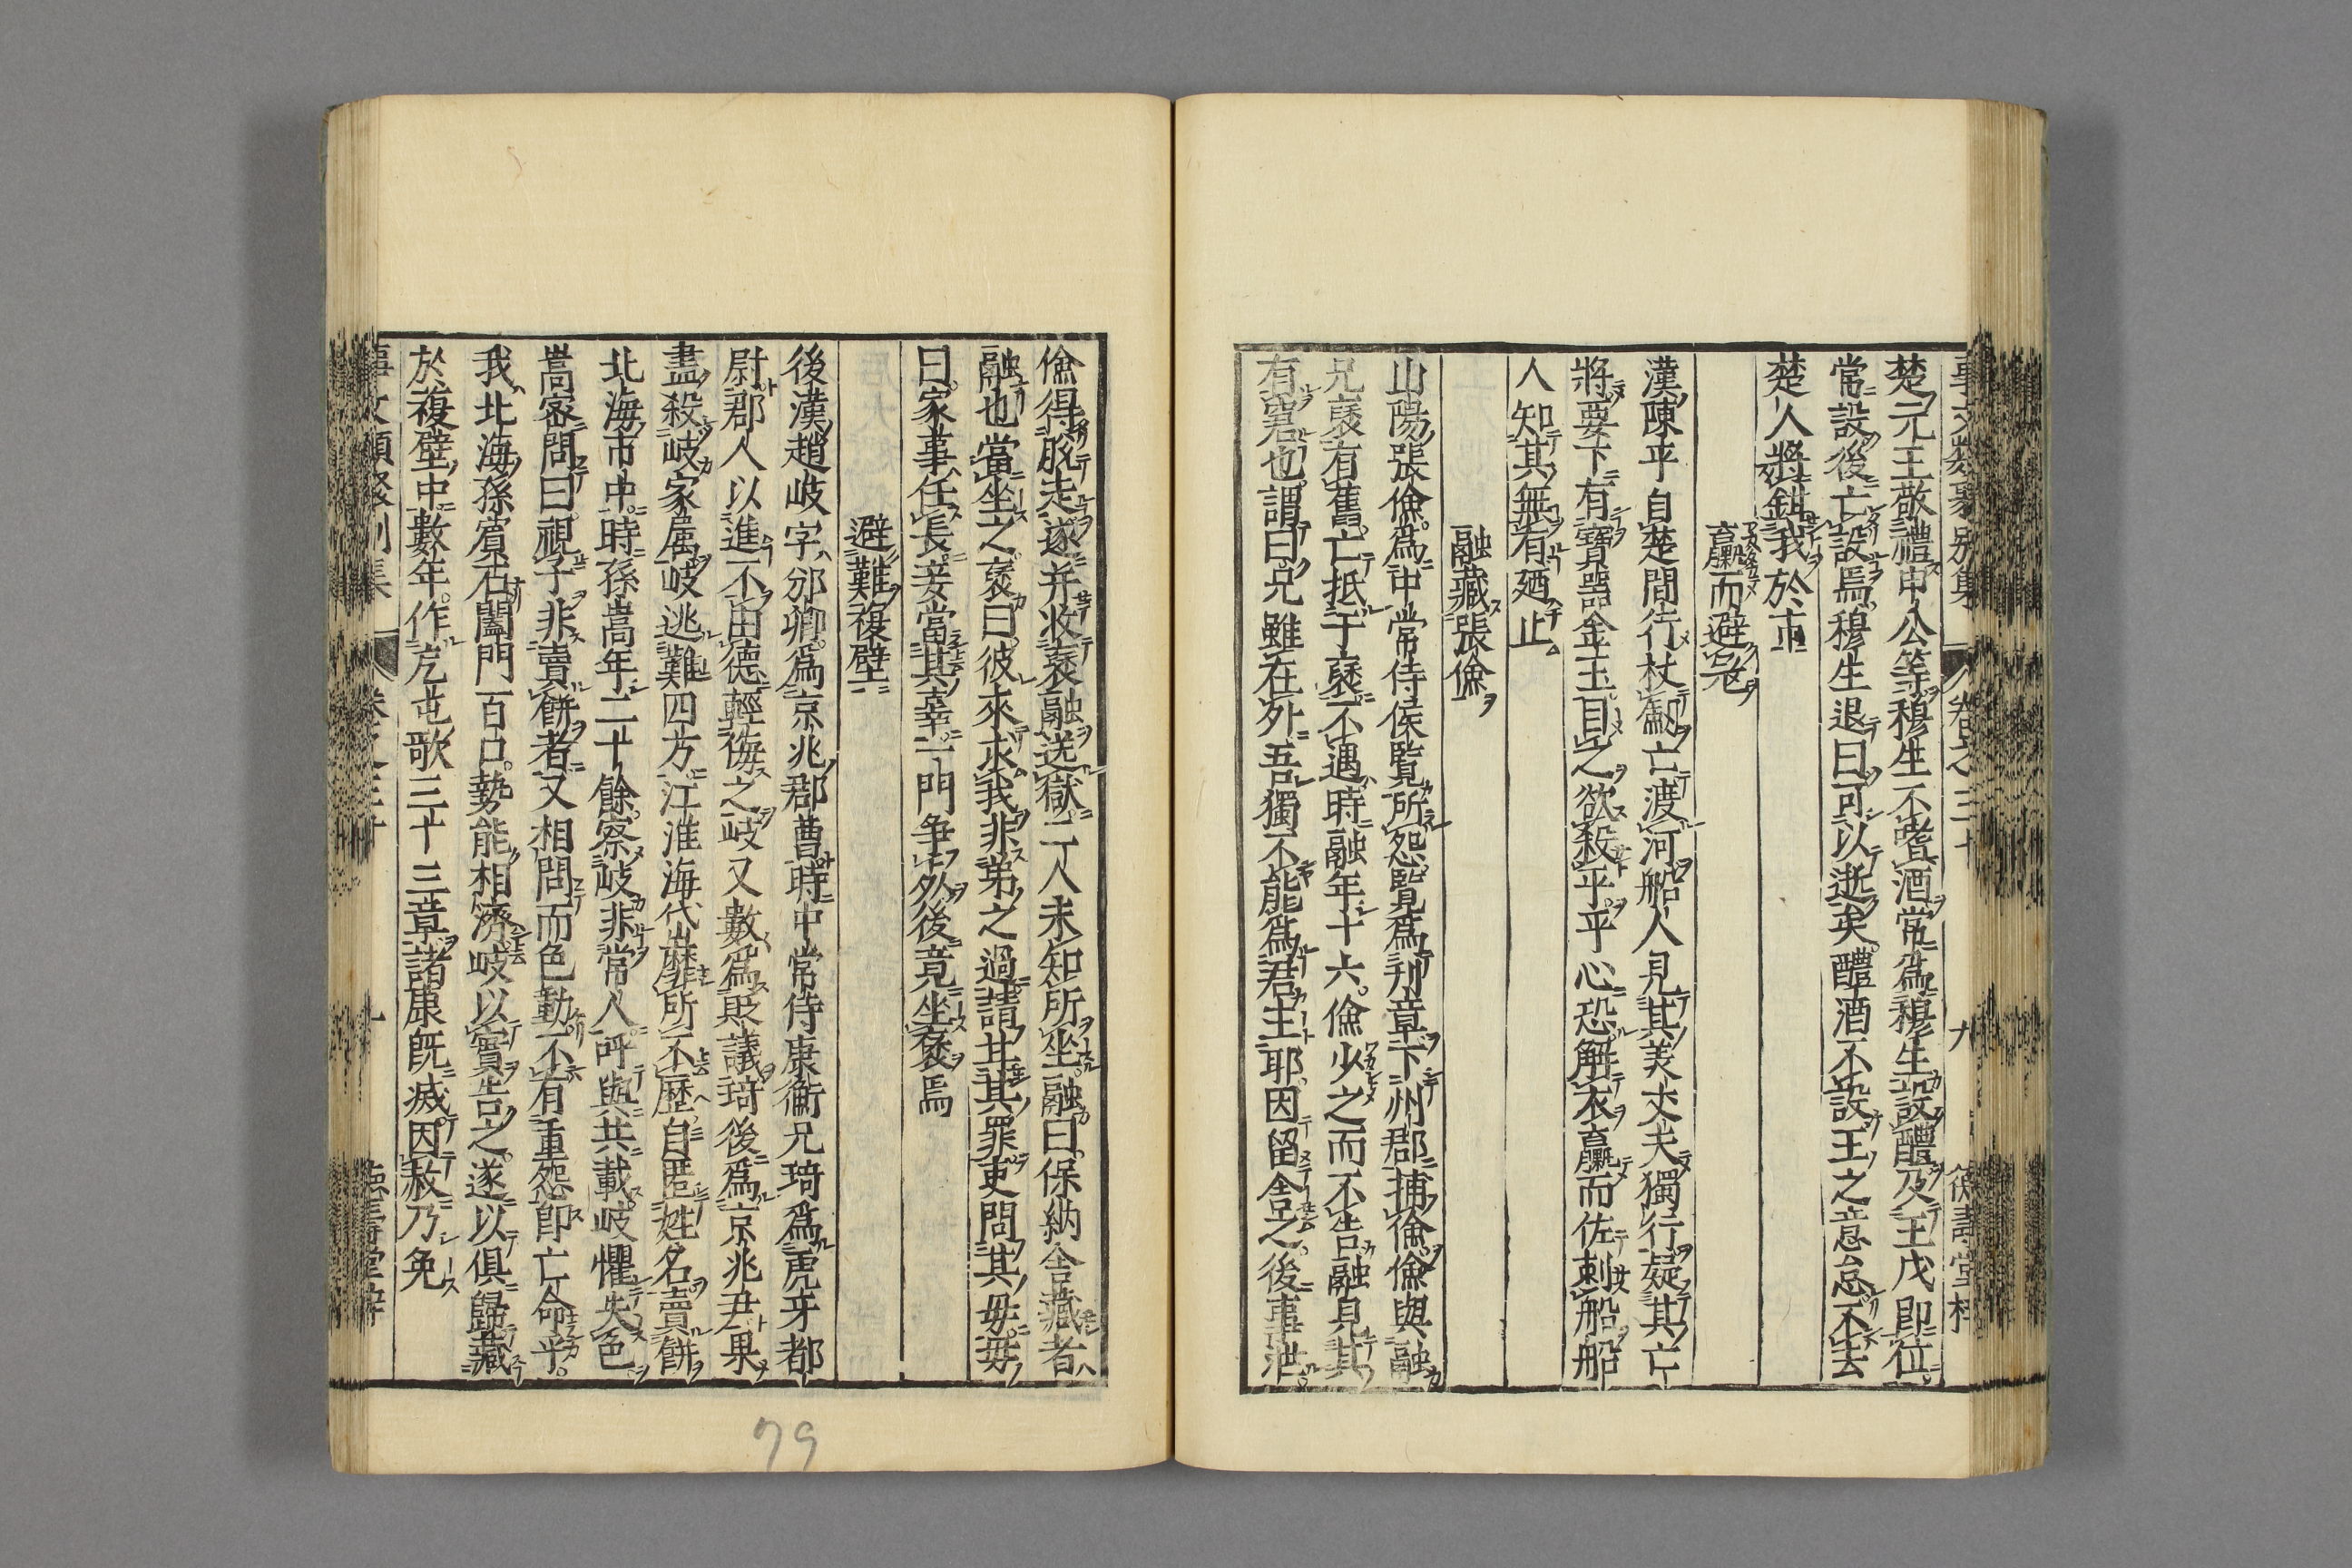 事文類聚別集 卷之三十 九 德壽堂梓
楚元王敬禮申公等穆生不嗜酒常爲穆生設醴及王戊即位
常設後亡設焉穆生退曰可以逝矣醴酒不設王之意怠不去
楚人將鉗我於市
羸而避冦
漢陳平自楚間行杖劔亡渡河船人見其美丈夫獨行疑其亡
將要下有寶噐金玉目之欲殺平平心恐解衣羸而佐刺船船
人知其無有廼止
融藏張儉
山陽張儉爲中常侍侯覧所怨覧爲刋章下州郡捕儉儉與融
兄褒有舊亡抵于褒不遇時融年十六儉少之而不告融見其
有窘也謂曰兄雖在外吾獨不能爲君主耶因留舎之後事泄
儉得脫走遂并收褒融送獄二人未知所坐融曰保納舎藏者
融也當坐之褒曰彼來求我非弟之過請甘其罪吏問其毋毋
曰家事任長妾當其辜一門争死後竟坐褒焉
避難複壁
後漢趙岐字邠卿爲京兆郡曹時中常侍康衡兄琦爲虎牙都
尉郡人以進不由德輕侮之岐又數爲貶議琦後爲京兆尹果
盡殺岐家属岐逃難四方江淮海岱靡所不歴自匿姓名賣餅
北海市中時孫嵩年二十餘察岐非常人呼與共載岐懼失色
嵩宻問曰視子非賣餅者又相問而色動不有重怨卽亡命乎
我北海孫賓石闔門百口勢能相濟岐以實告之遂以俱歸藏
於複壁中數年作戹屯歌三十三章諸康旣滅因赦乃免
事文類聚別集 卷之三十 九 德壽堂梓
79